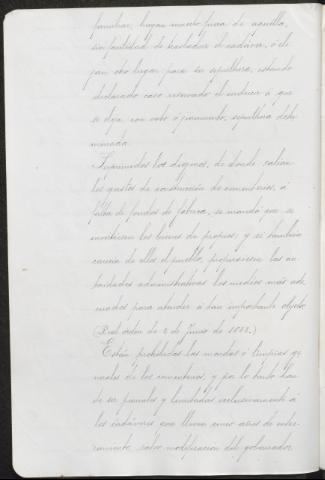 familiar, hagan muerto fuera de aquella,
sin facilidad de trasladar el cadáver, ó eli-
jan otro lugar para su sepultura, estando
declarado caso reservado el inducir á que
se elija con voto ó juramento, sepultura deter-
minada.
Suprimidos los diezmos, de donde salian
los gastos de construccion de cementerios, á
falta de fondos de fábrica, se mandó que se
invirtiesen los bienes de propios; y si tambien
carecia de ellos el pueblo, propusiesen las au-
toridades administrativas los medios más aco-
modados para atender á tan importante objeto.
(Real orden de 2 de Junio de 1833.)
Están prohibidas las mondas ó limpias ge-
nerales de los cementerios, y por lo tanto han
de ser parciales y limitadas exclusivamente á
los cadáveres que lleven cinco años de enter-
ramiento, salvo modificacion del gobernador